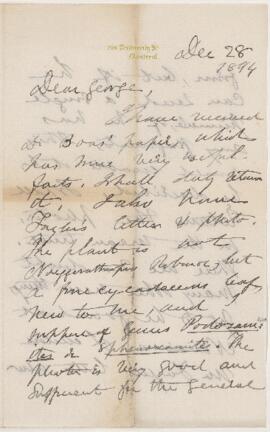 Dec 28
1894
Dear George,
I have received
Dr Boas' paper, which
has some very useful
facts. I shall duly return
it. I also have
letter & photo.
The plant is not
but
a fine cycadaceous leaf,
new to me, and I
suppose of genus Podozam-
ites or Sphenozamites. The
photo is very good and
sufficient for the general